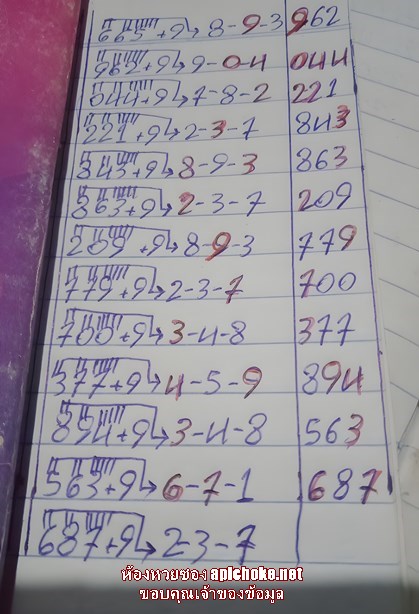 665+9→8-9-3 962
962+9→9-0-4 044
044+9→7-8-2 221
221+9→2-3-7 843
843+9→8-9-3 863
863+9→2-3-7 209
209+9→8-9-3 779
779+9→2-3-7 700
700+9→3-4-8 377
377+9→4-5-9 894
894+9→3-4-8 563
563+9→6-7-1 687
687+9→2-3-7
ห้องหวยซอง aplchoke.net
ขอบคุณเจ้าของข้อมูล